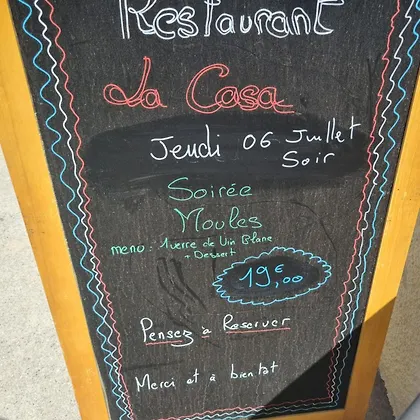 Restaurant
La Casa
Jeudi 06 Juillet
Soir
Soirée
Moules
menu : 1 verre de Vin Blanc
+ Dessert
19€,00
Pensez a Reserver
Merci et à bientot